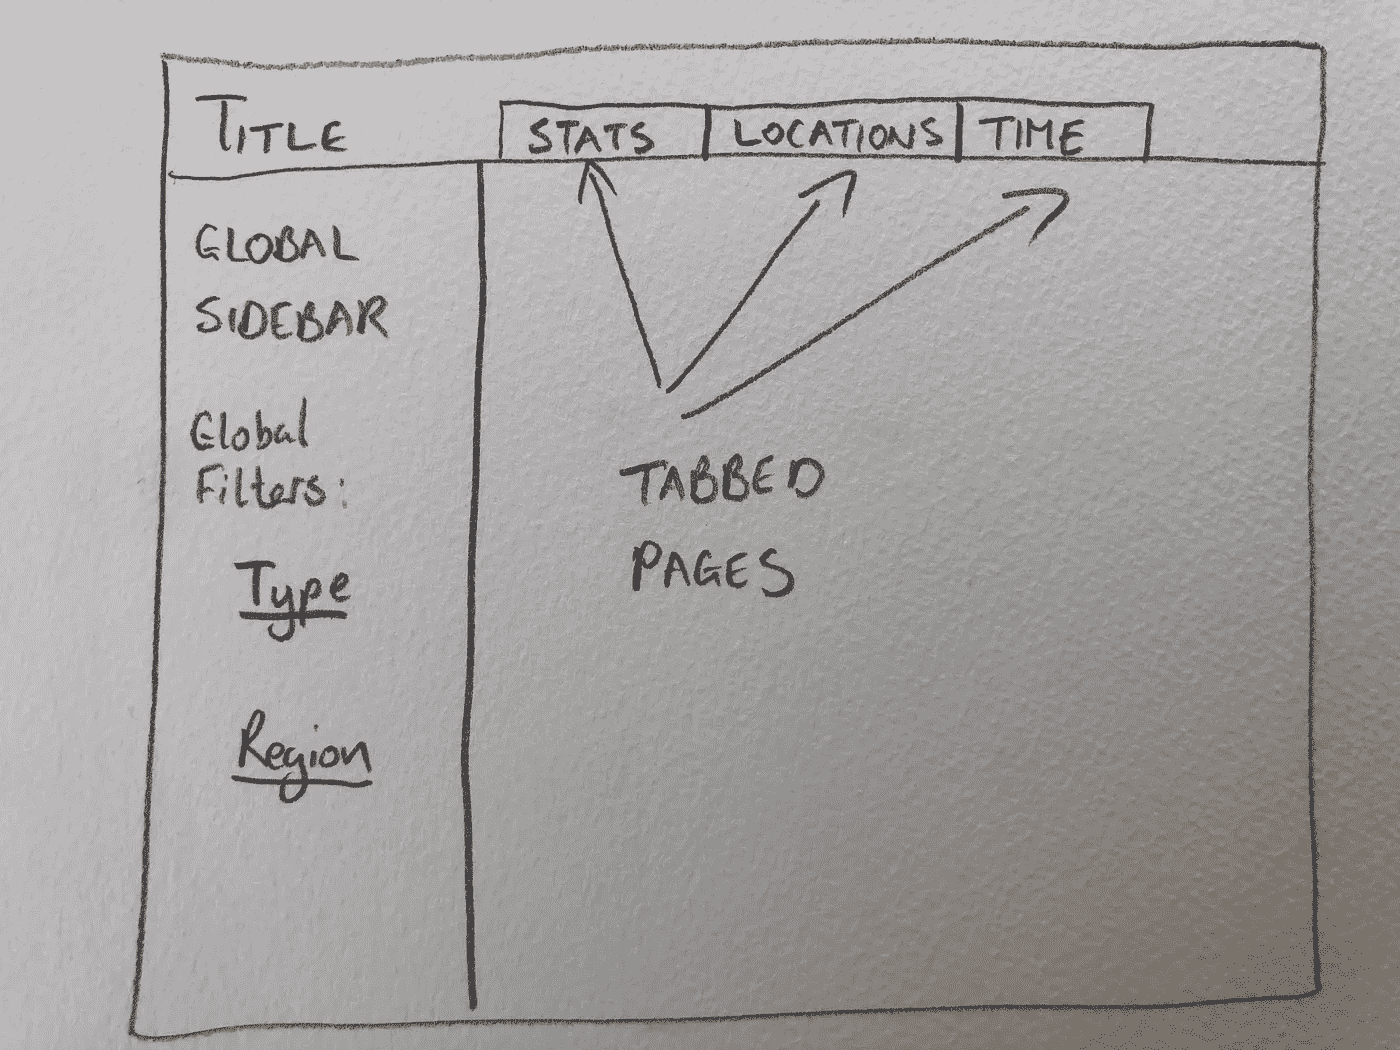 TITLE
STATS
LOCATIONS
TIME
GLOBAL
SIDEBAR
Global
Filters:
Type
Region
TABBED
PAGES